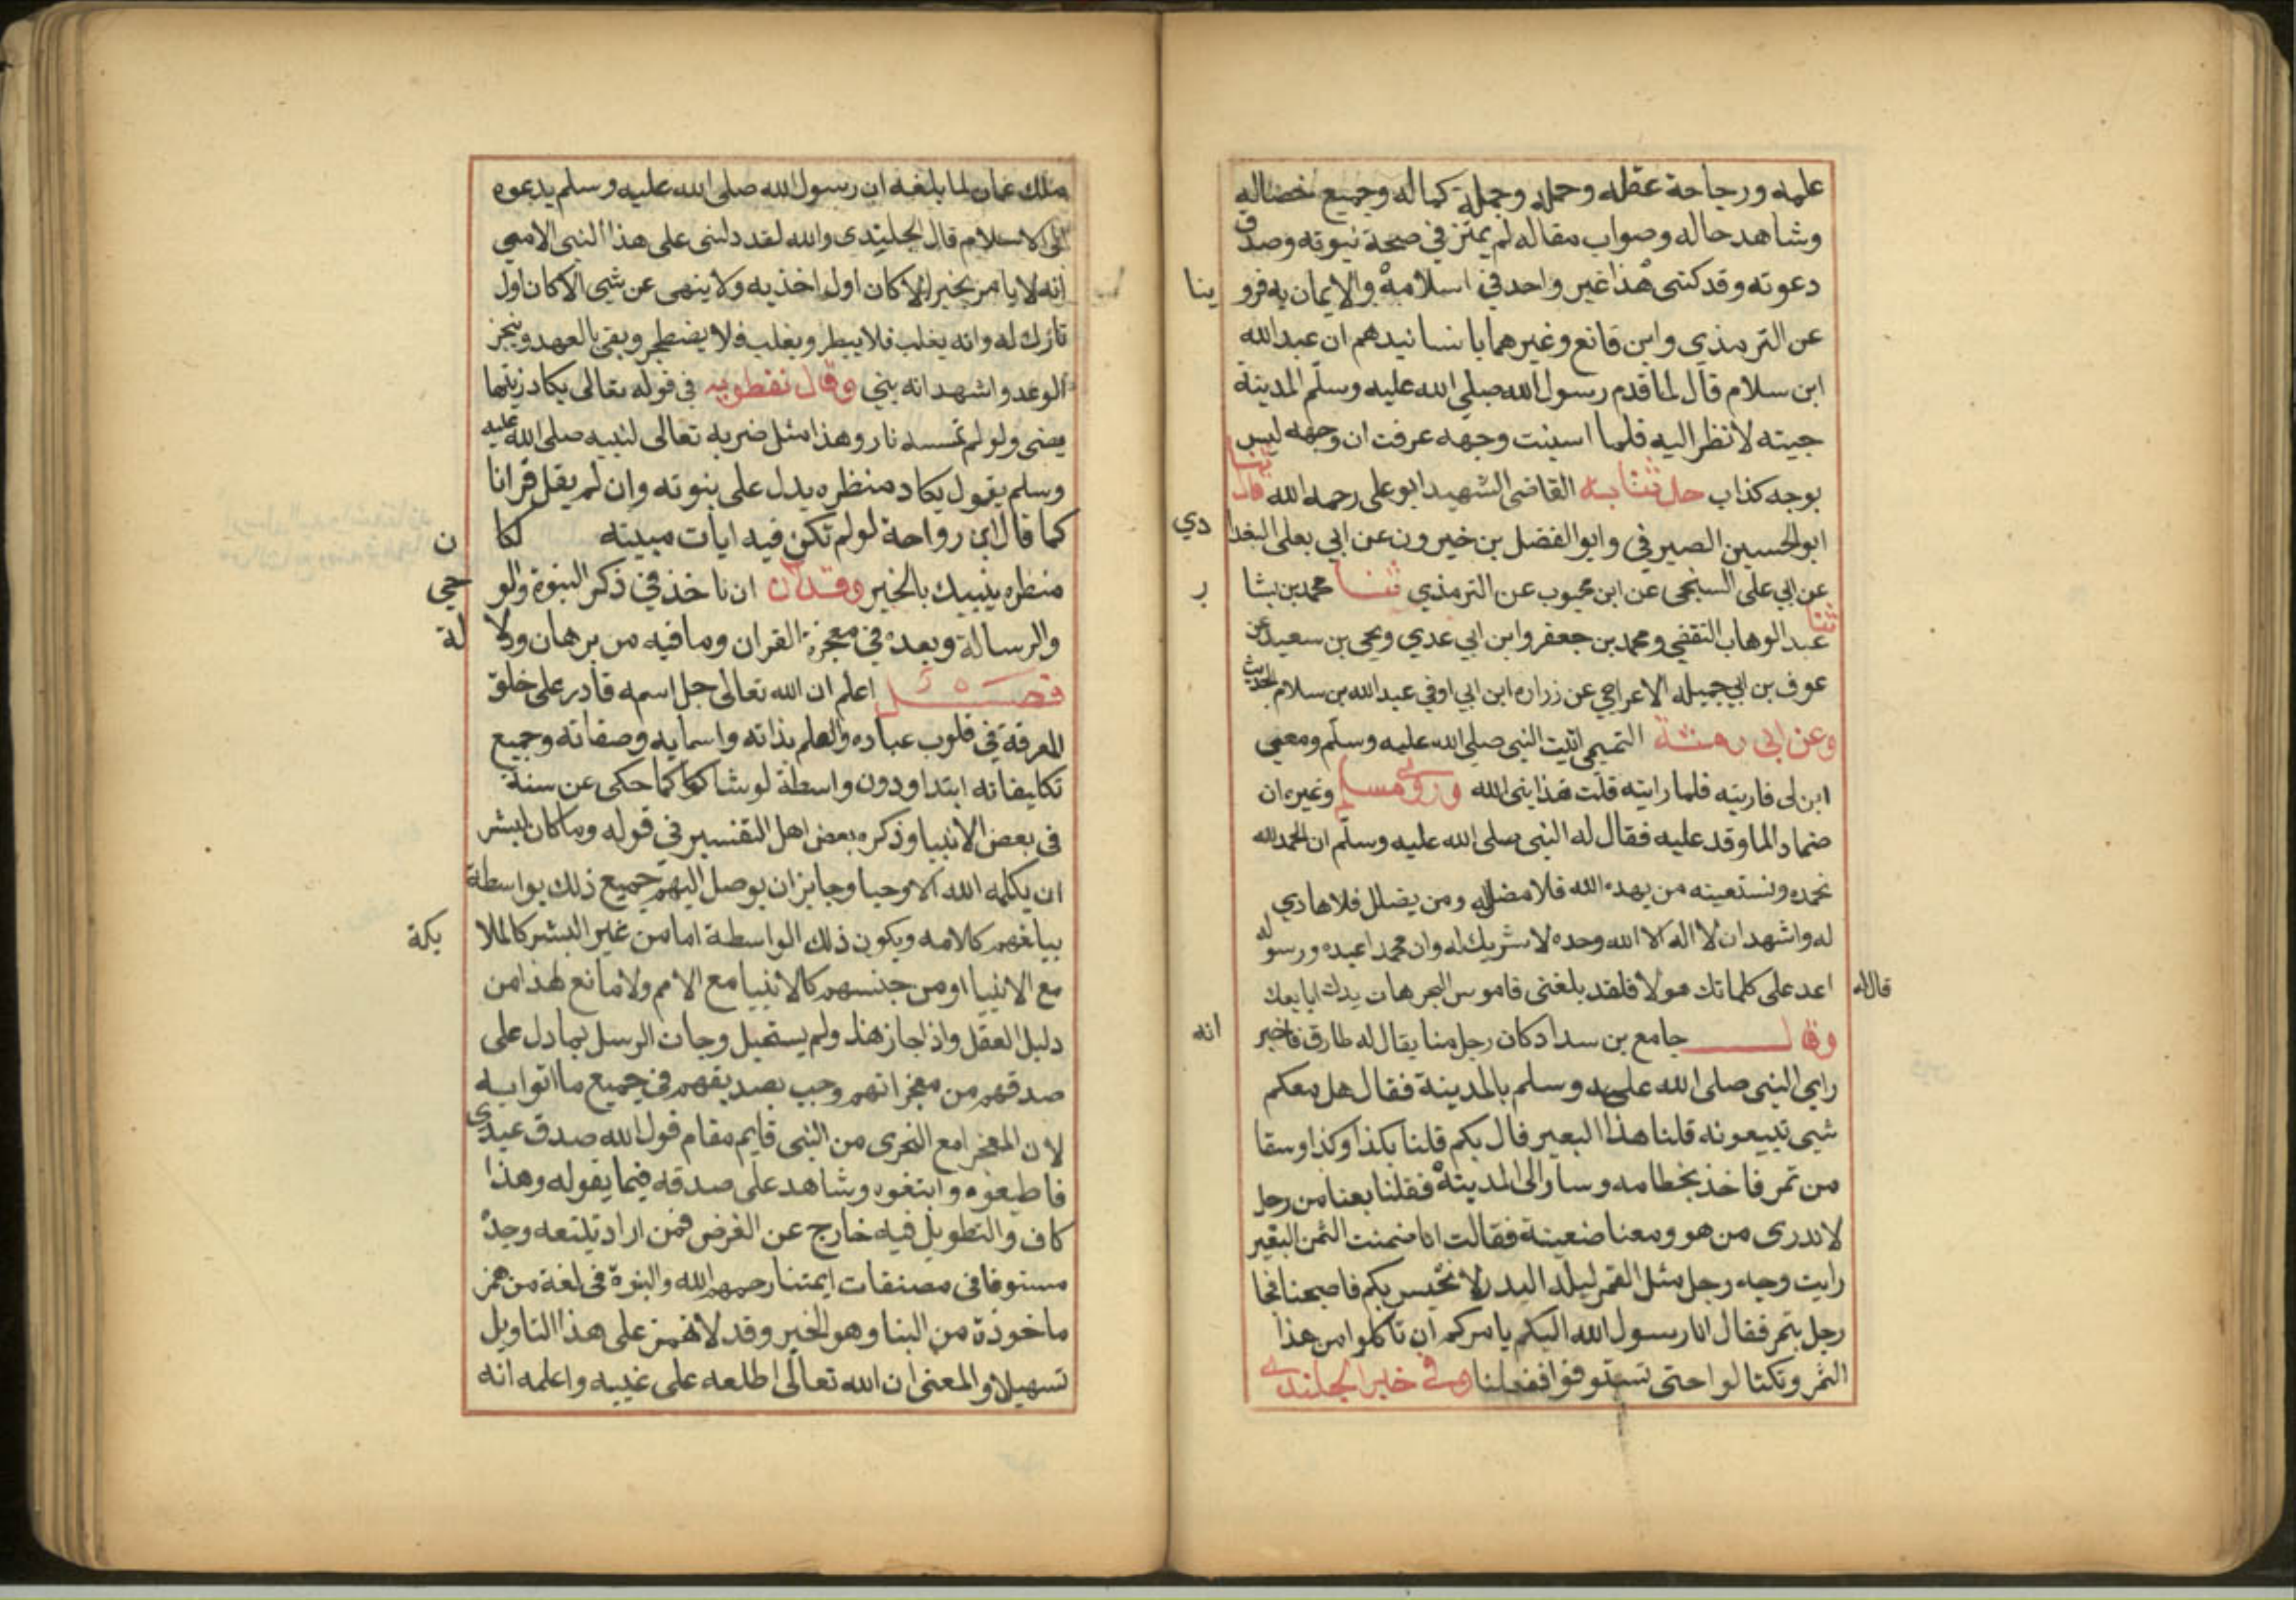 علمه ورجاحة عقله وحمله وجملة كماله وجميع خصاله
وشاهد حاله وصواب مقاله لم يمتز في صحة نبوته وصدق
دعوته وقد كفى هذا غير واحد في اسلامه والايمان به فروينا
عن الترمذي وابن قانع وغيرهما باسانيدهم ان عبد الله
ابن سلام قال لما قدم رسول الله صلى الله عليه وسلم المدينة
جيته لانظر اليه فلما استبنت وجهه عرفت ان وجهه ليس
بوجه كذاب حدثنا به القاضي الشهيد ابو على رحمه الله قال ثنا
ابو الحسين الصيرفي وابو الفضل بن خيرون عن ابي يعلى البغدادي
عن ابي على السنجى عن ابن محبوب عن الترمذي ثنا محمد بن بشار
ثنا عبد الوهاب الثقفي ومحمد بن جعفر وابن ابي عدي ويحيى بن سعيد عن
عوف بن ابي جميله الاعرابي عن زراره ابن ابي اوفي عبد الله بن سلام الحديث
وعن ابى رمثة التميمى اتيت النبى صلى الله عليه وسلم ومعي
ابن لى فاريته فلما رايته قلت هذا نبى الله وروى مسلم وغيره ان
ضمادا لما وفد عليه فقال له النبى صلى الله عليه وسلم ان الحمد لله
نحمده ونستعينه من يهده الله فلا مضل له ومن يضلل فلا هادي
له واشهد ان لا اله الا الله وحده لا شريك له وان محمدا عبده ورسوله
قال له اعد على كلماتك هولا فلقد بلغنى قاموس البحر هات يدك ابايعك
وقال جامع بن سداد كان رجل منا يقال له طارق فاخبر انه
راى النبى صلى الله عليه وسلم بالمدينة فقال هل معكم
شيى تبيعونه قلنا هذا البعير قال بكم قلنا بكذا وكذا وسقا
من تمر فاخذ بخطامه وسار الى المدينة فقلنا بعنا من رجل
لا ندرى من هو ومعنا ضعينة فقالت انا ضمنت الثمن البعير
رايت وجه رجل مثل القمر ليلة البدر لا نخيس بكم فاصبحنا فجا
رجل بتمر فقال انا رسول الله اليكم يامركم ان تاكلوا من هذا
التمر وتكتالوا حتى تستوفوا ففعلنا وفى خبر الجلندى
ملك عمان لما بلغه ان رسول الله صلى الله عليه وسلم يدعوه
الى الاسلام قال الجليندى والله لقد دلنى على هذا النبى الامي
انه لا يامر بخير الا كان اول اخذ به ولا ينهى عن شيى الا كان اول
تارك له وانه يغلب فلا يبطر ويغلب فلا يضطجر ويفى بالعهد وينجز
الوعد واشهد انه بنى وقال نفطويه في قوله تعالى يكاد زيتها
يضى ولو لم تمسسه نار وهذا مثل ضربه تعالى لنبيه صلى الله عليه
وسلم يقول يكاد منظره يدل على بنوته وان لم يقل قرانا
كما قال ابن رواحة لو لم تكن فيه ايات مبينه لكان
منظره ينبيك بالخير وقد ان ان ناخذ في ذكر النبوة والوحي
والرسالة وبعده في معجزة القران وما فيه من برهان ودلالة
فصل اعلم ان الله تعالى جل اسمه قادر على خلق
المعرفة في قلوب عباده والعلم بذاته واسمايه وصفاته وجميع
تكليفاته ابتدا ودون واسطة لو شا كما حكى عن سنة
في بعض الانبيا وذكره بعض اهل التفسير في قوله وما كان لبشر
ان يكلمه الله الا وحيا وجايز ان يوصل اليهم جميع ذلك بواسطة
يبلغهم كلامه ويكون ذلك الواسطة اما من غير البشر كالملايكة
مع الانبيا او من جنسهم كالانبيا مع الامم ولا مانع لهذا من
دليل العقل واذا جاز هذا ولم يستحيل وجات الرسل بما دل على
صدقهم من معجزاتهم وجب تصديقهم في جميع ما اتوا به
لان المعجز مع التحرى من النبى قايم مقام قول الله صدق عبدى
فاطيعوه وابتغوه وشاهد على صدقه فيما يقوله وهذا
كاف والتطويل فيه خارج عن الغرض فمن اراد تتبعه وجده
مستوفا في مصنفات ايمتنا رحمهم الله والنبوة في لغة من همز
ماخوذة من النبا وهو الخبر وقد لا تهمز على هذا التاويل
تسهيلا والمعنى ان الله تعالى اطلعه على غيبه واعلمه انه